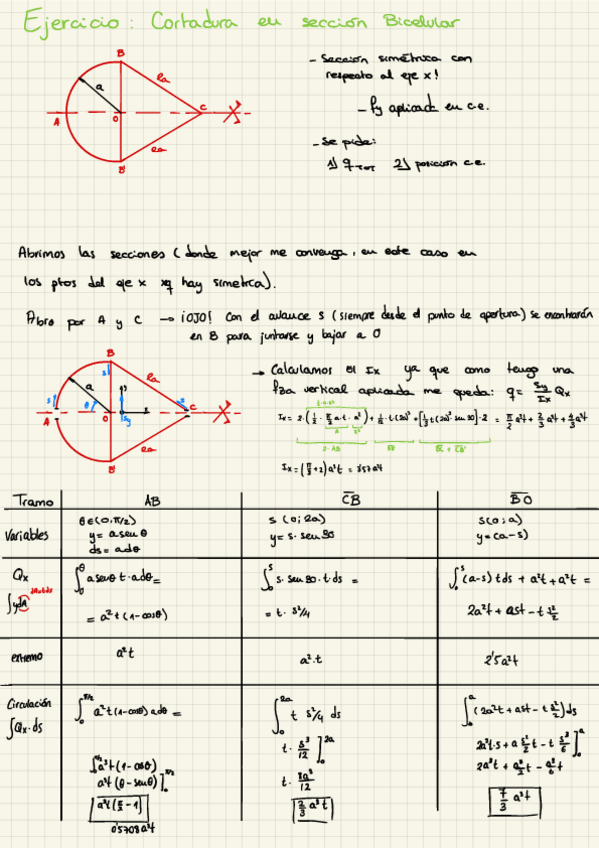 Ejercicio: Cortadura en sección Bicelular
B
2a
a
A
O
C
X
2a
B'
- Sección simétrica con
respecto al eje x!
- Fy aplicada en c.e.
- Se pide:
1) qTOT 2) posición c.e.
Abrimos las secciones (donde mejor me convenga, en este caso en
los ptos del eje x xq hay simetria).
Abro por A y C → ¡OJO! Con el avance s (siempre desde el punto de apertura) se encontrarán
en B para juntarse y bajar a O
B
s
2a
a
s
θ
A
O
Sy
C
X
2a
B'
→ Calculamos el Ix ya que como tengo una
fza vertical aplicada me queda: q = Sy/Ix Qx
Ix = 2·(1/2 · π/2 a·t · a²) + 1/12 · t(2a)³ + [1/3 t(2a)³ sen²30]·2 = π/2 a³t + 2/3 a³t + 4/3 a³t
2·AB BB' BC + CB'
Ix = (π/2 + 2) a³t = 3'57a³t
Tramo AB CB BO
Variables
θ∈(0,π/2)
y = a senθ
ds = adθ
s (0;2a)
y = s·sen30
s(0;a)
y = (a-s)
Qx
∫ydA
dA=tds
∫₀^θ a senθ t·adθ =
= a²t (1-cosθ)
∫₀^s s·sen30·t ds =
= t·s²/4
∫₀^s (a-s)tds + a²t + a²t =
2a²t + ast - t s²/2
extremo a²t a²·t 2'5a²t
Circulación
∫Qx·ds
∫₀^π/2 a²t (1-cosθ) adθ =
∫₀^π/2 a³t (1-cosθ)
a³t (θ-senθ)]₀^π/2
a³t(π/2 - 1)
0'5708a³t
∫₀^2a t s²/4 ds
t·s³/12]₀^2a
t·8a³/12
2/3 a³t
∫₀^a (2a²t + ast - t s²/2)ds
2a²t·s + a s²/2 t - t s³/6]₀^a
2a³t + a³/2 t - a³/6 t
7/3 a³t